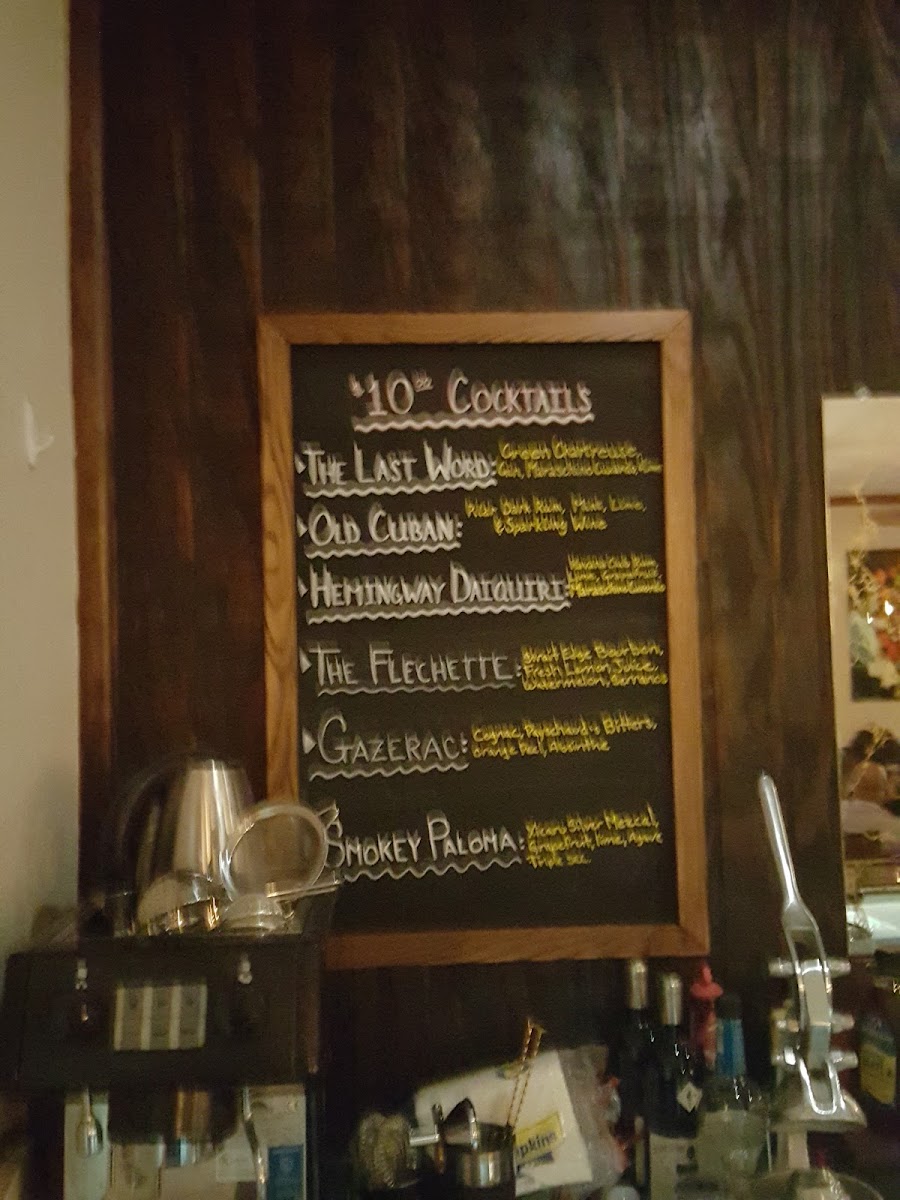 $10.00 COCKTAILS
THE LAST WORD: Green Chartreuse,
Gin, Maraschino Luxardo, Lime
OLD CUBAN: Dark Rum, Mint, Lime,
& Sparkling Wine
HEMINGWAY DAIQUIRI: Havana Club Rum,
Lime, Grapefruit,
Maraschino Luxardo
THE FLECHETTE: Strait Edge Bourbon,
Fresh Lemon Juice,
Watermelon, Serranos
GAZERAC: Cognac, Peyschaud's Bitters,
Orange Peel, Absinthe
SMOKEY PALOMA: Xicaru Silver Mezcal,
Grapefruit, lime, Agave
Triple Sec.
pkins